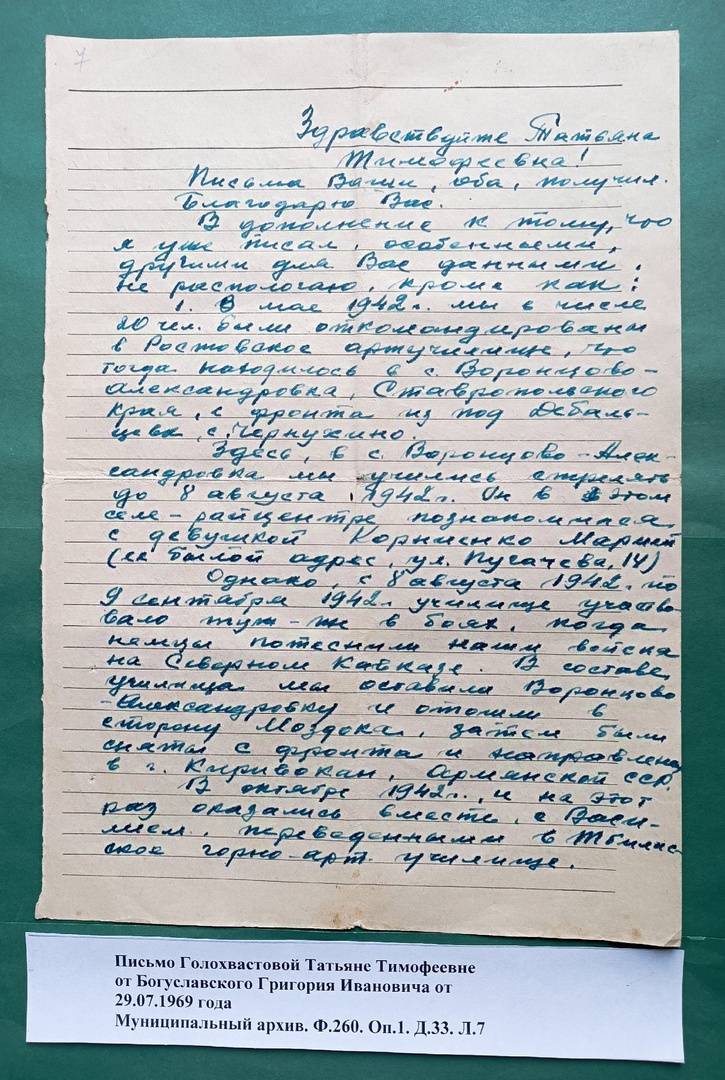 7
Здравствуйте Татьяна
Тимофеевна!
Письма Ваши, оба, получил.
Благодарю Вас.
В дополнение к тому, что
я уже писал, особенными,
другими для Вас данными,
не распологаю, кроме как:
1. В мае 1942г. мы в числе
20 чел. были откомандированы
в Ростовское артучилище, что
тогда находилось в с. Воронцово-
Александровка, Ставропольского
края, с фронта из под Дебаль-
цева, с. Чернухино.
Здесь, в с. Воронцово-Алек-
сандровка мы учились стрелять
до 8 августа 1942г. Он в этом
селе-райцентре познакомился
с девушкой Корниенко Марией
(ее былой адрес, ул. Пугачева, 14)
Однако, с 8 августа 1942г. по
9 сентября 1942г. училище участво-
вало тут-же в боях, когда
немцы потеснили наши войска
на Северном Кавказе. В составе
училища мы оставили Воронцово
-Александровку и отошли в
сторону Моздока, затем были
сняты с фронта и направлены
в г. Кировокан, Армянской ССР.
В октябре 1942г., и на этот
раз оказались вместе, с Васи-
лием, переведенными в Тбилис-
ское горно-арт. училище.
Письмо Голохвастовой Татьяне Тимофеевне
от Богуславского Григория Ивановича от
29.07.1969 года
Муниципальный архив. Ф.260. Оп.1. Д.33. Л.7